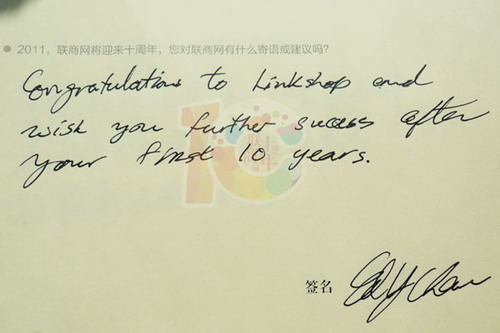 ● 2011，联商网将迎来十周年，您对联商网有什么寄语或建议吗？
Congratulations to Linkshop and
wish you further success after
your first 10 years.
签名